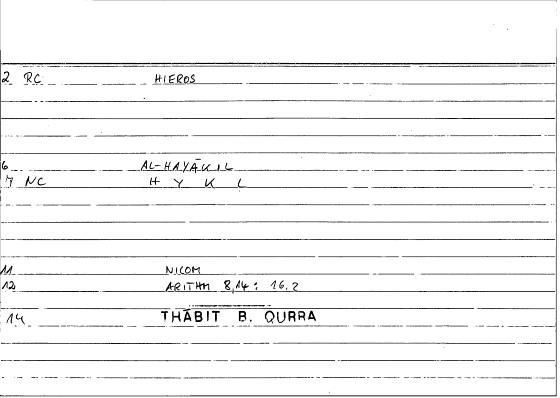 2 RC HIEROS
6 AL-HAYĀKIL
7 NC H Y K L
11 NICOM
12 ARITHM 8,14: 16.2
14 THĀBIT B. QURRA